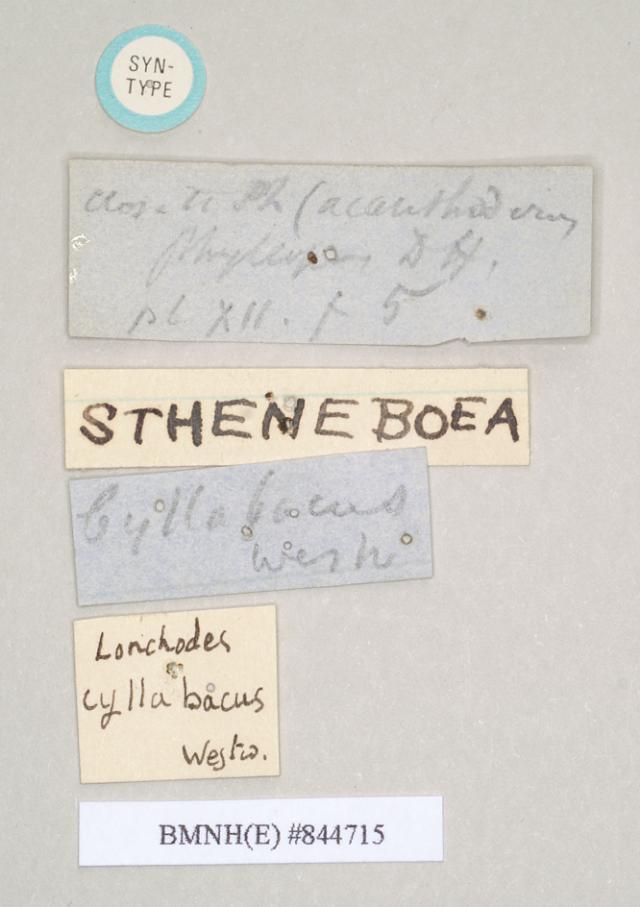 SYN-
TYPE
close to Ph (acanthoderus
D H.
pl XII. f 5
STHENEBOEA
Cyllabacus
Westw
Lonchodes
cyllabacus
Westw.
BMNH(E) #844715